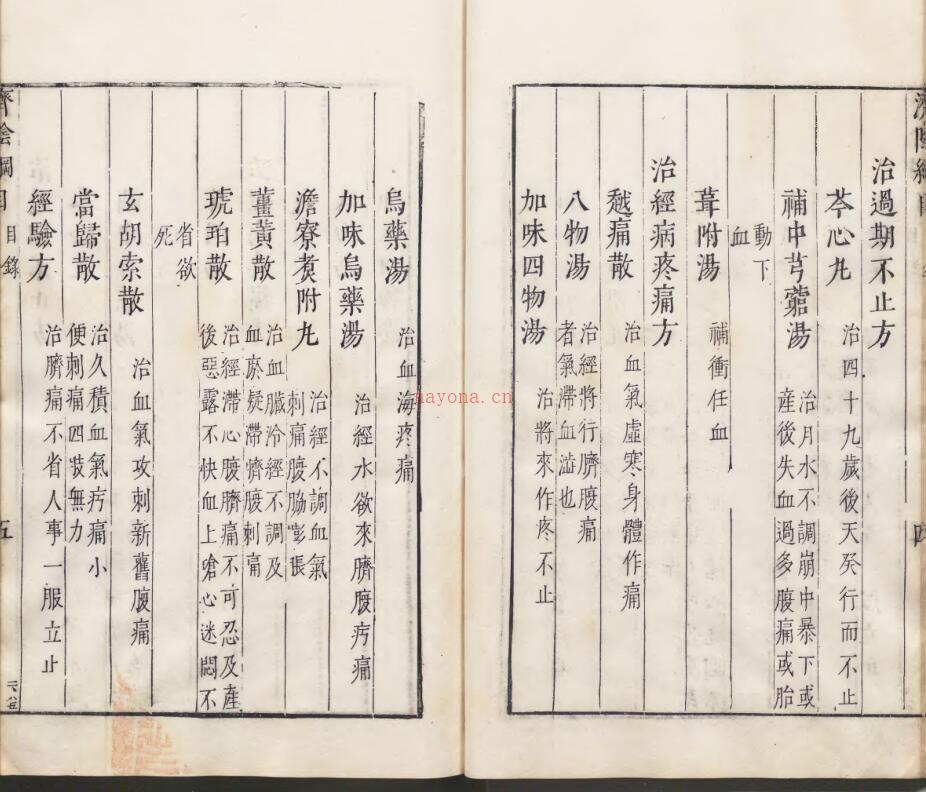 治過期不止方
芩心丸 治四十九歲後天癸行而不止
補中芎藭湯 治月水不調崩中暴下或
產後失血過多腹痛或胎
動下
血
葺附湯 補衝任血
治經病疼痛方
越痛散 治血氣虛寒身體作痛
八物湯 治經將行臍腹痛
者氣滯血澁也
加味四物湯 治將來作疼不止
烏藥湯 治血海疼痛
加味烏藥湯 治經水欲來臍腹疞痛
澹寮煑附丸 治經不調血氣
刺痛腹脇膨脹
薑黃散 治血臟冷經不調及
血瘀凝滯臍腹刺痛
琥珀散 治經滯心腹臍痛不可忍及產
後惡露不快血上嗆心迷悶不
省欲
死
玄胡索散 治血氣攻刺新舊腹痛
當歸散 治久積血氣疞痛小
便刺痛四裝無力
經驗方 治臍痛不省人事一服立止
濟陰綱目 目錄 五
nayona.cn